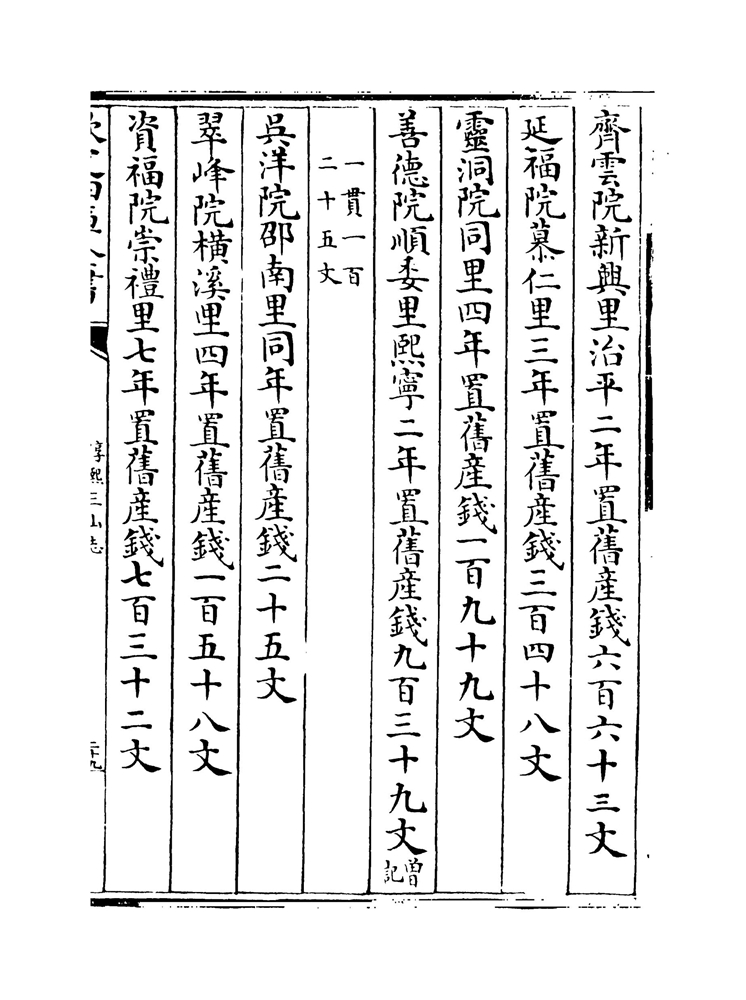 齊雲院新興里治平二年置舊產錢六百六十三文
延福院慕仁里三年置舊產錢三百四十八文
靈洞院同里四年置舊產錢一百九十九文
善德院順委里熙寧二年置舊產錢九百三十九文曾記
一貫一百
二十五文
吳洋院邵南里同年置舊產錢二十五文
翠峰院橫溪里四年置舊產錢一百五十八文
資福院崇禮里七年置舊產錢七百三十二文
淳熙三山志
二十九